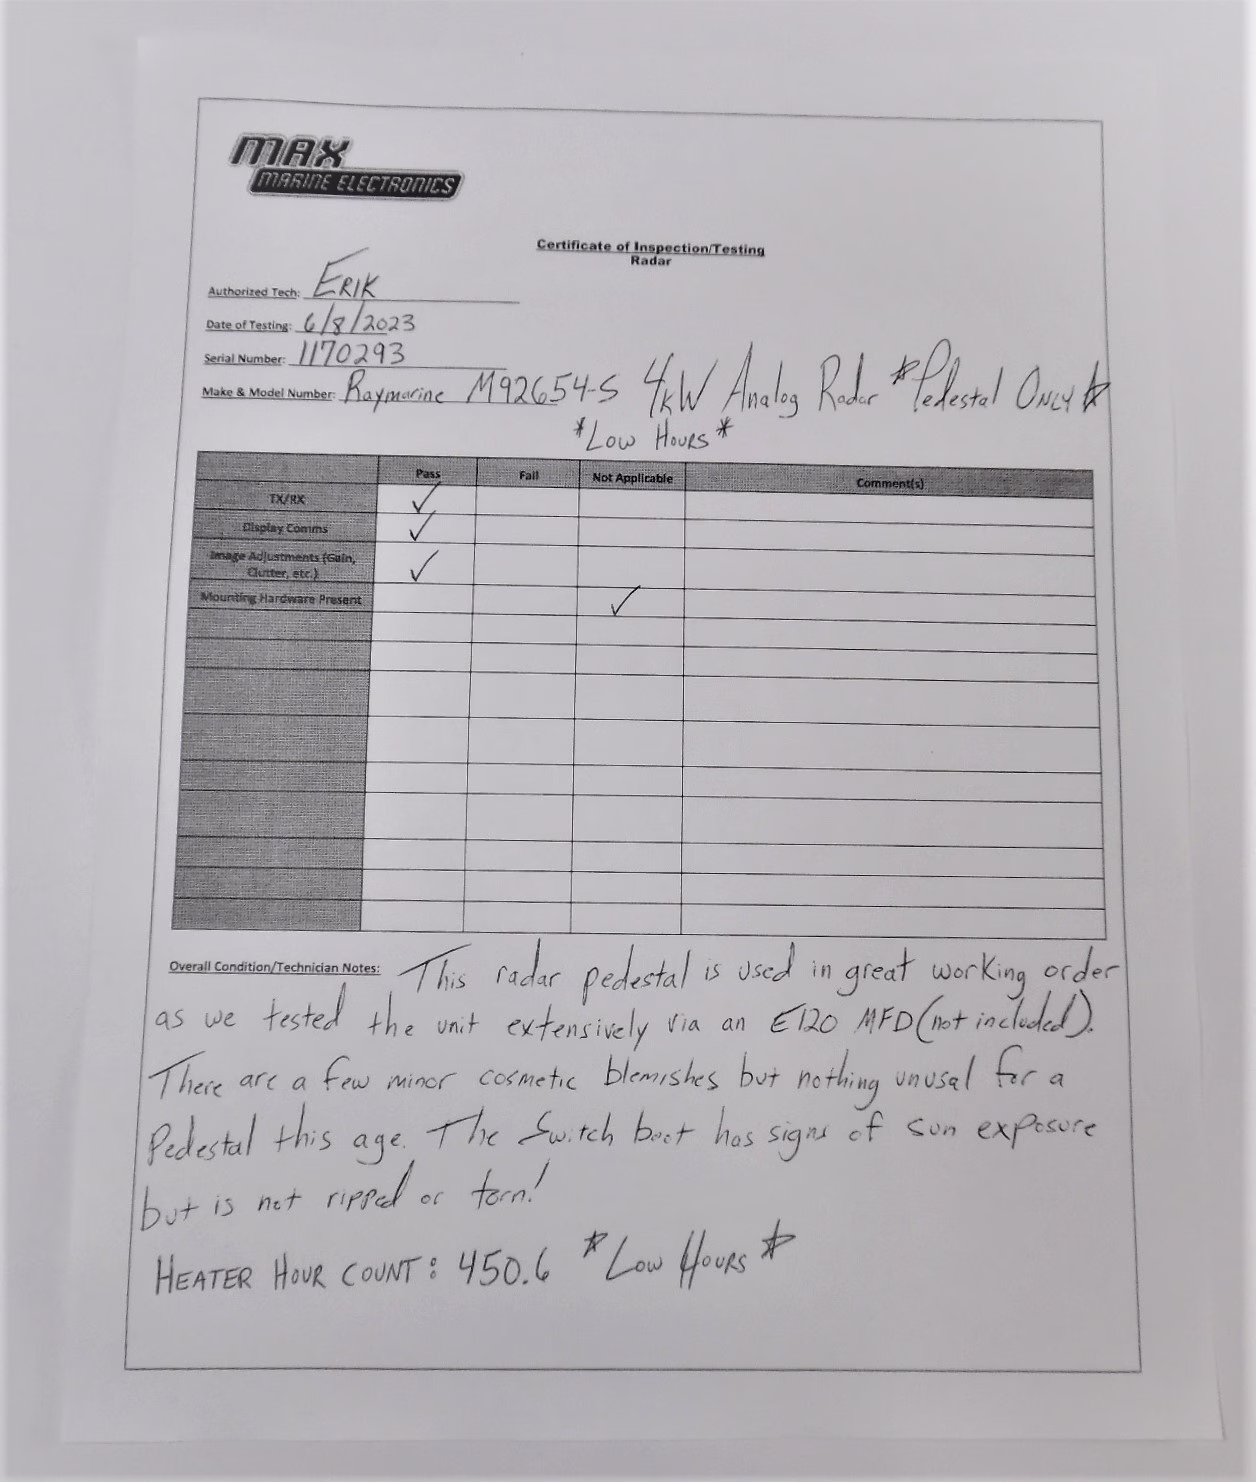 MAX
MARINE ELECTRONICS
Certificate of Inspection/Testing
Radar
Authorized Tech: ERIK
Date of Testing: 6/8/2023
Serial Number: 1170293
Make & Model Number: Raymarine M92654-S 4kW Analog Radar *Pedestal ONLY*
*LOW HOURS*
Pass Fail Not Applicable Comment(s)
TX/RX ✓
Display Comms ✓
Image Adjustments (Gain,
Clutter, etc.) ✓
Mounting Hardware Present ✓
Overall Condition/Technician Notes: This radar pedestal is used in great working order
as we tested the unit extensively via an E120 MFD (not included).
There are a few minor cosmetic blemishes but nothing unusal for a
Pedestal this age. The Switch boot has signs of sun exposure
but is not ripped or torn!
HEATER HOUR COUNT: 450.6 *LOW HOURS*